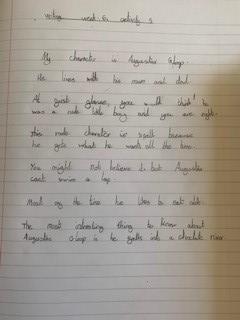 writing week 6 activity 2
My character is Augustus Gloop.
He lives with his mum and dad.
At first glance, you will think he
was a rude little boy and you are right.
This rude character is spoilt because
he gets what he wants all the time.
You might not believe it but Augustus
cant swim a lap.
Most of the time he likes to eat alot.
The most interesting thing to know about
Augustus Gloop is he falls into a chocolate river